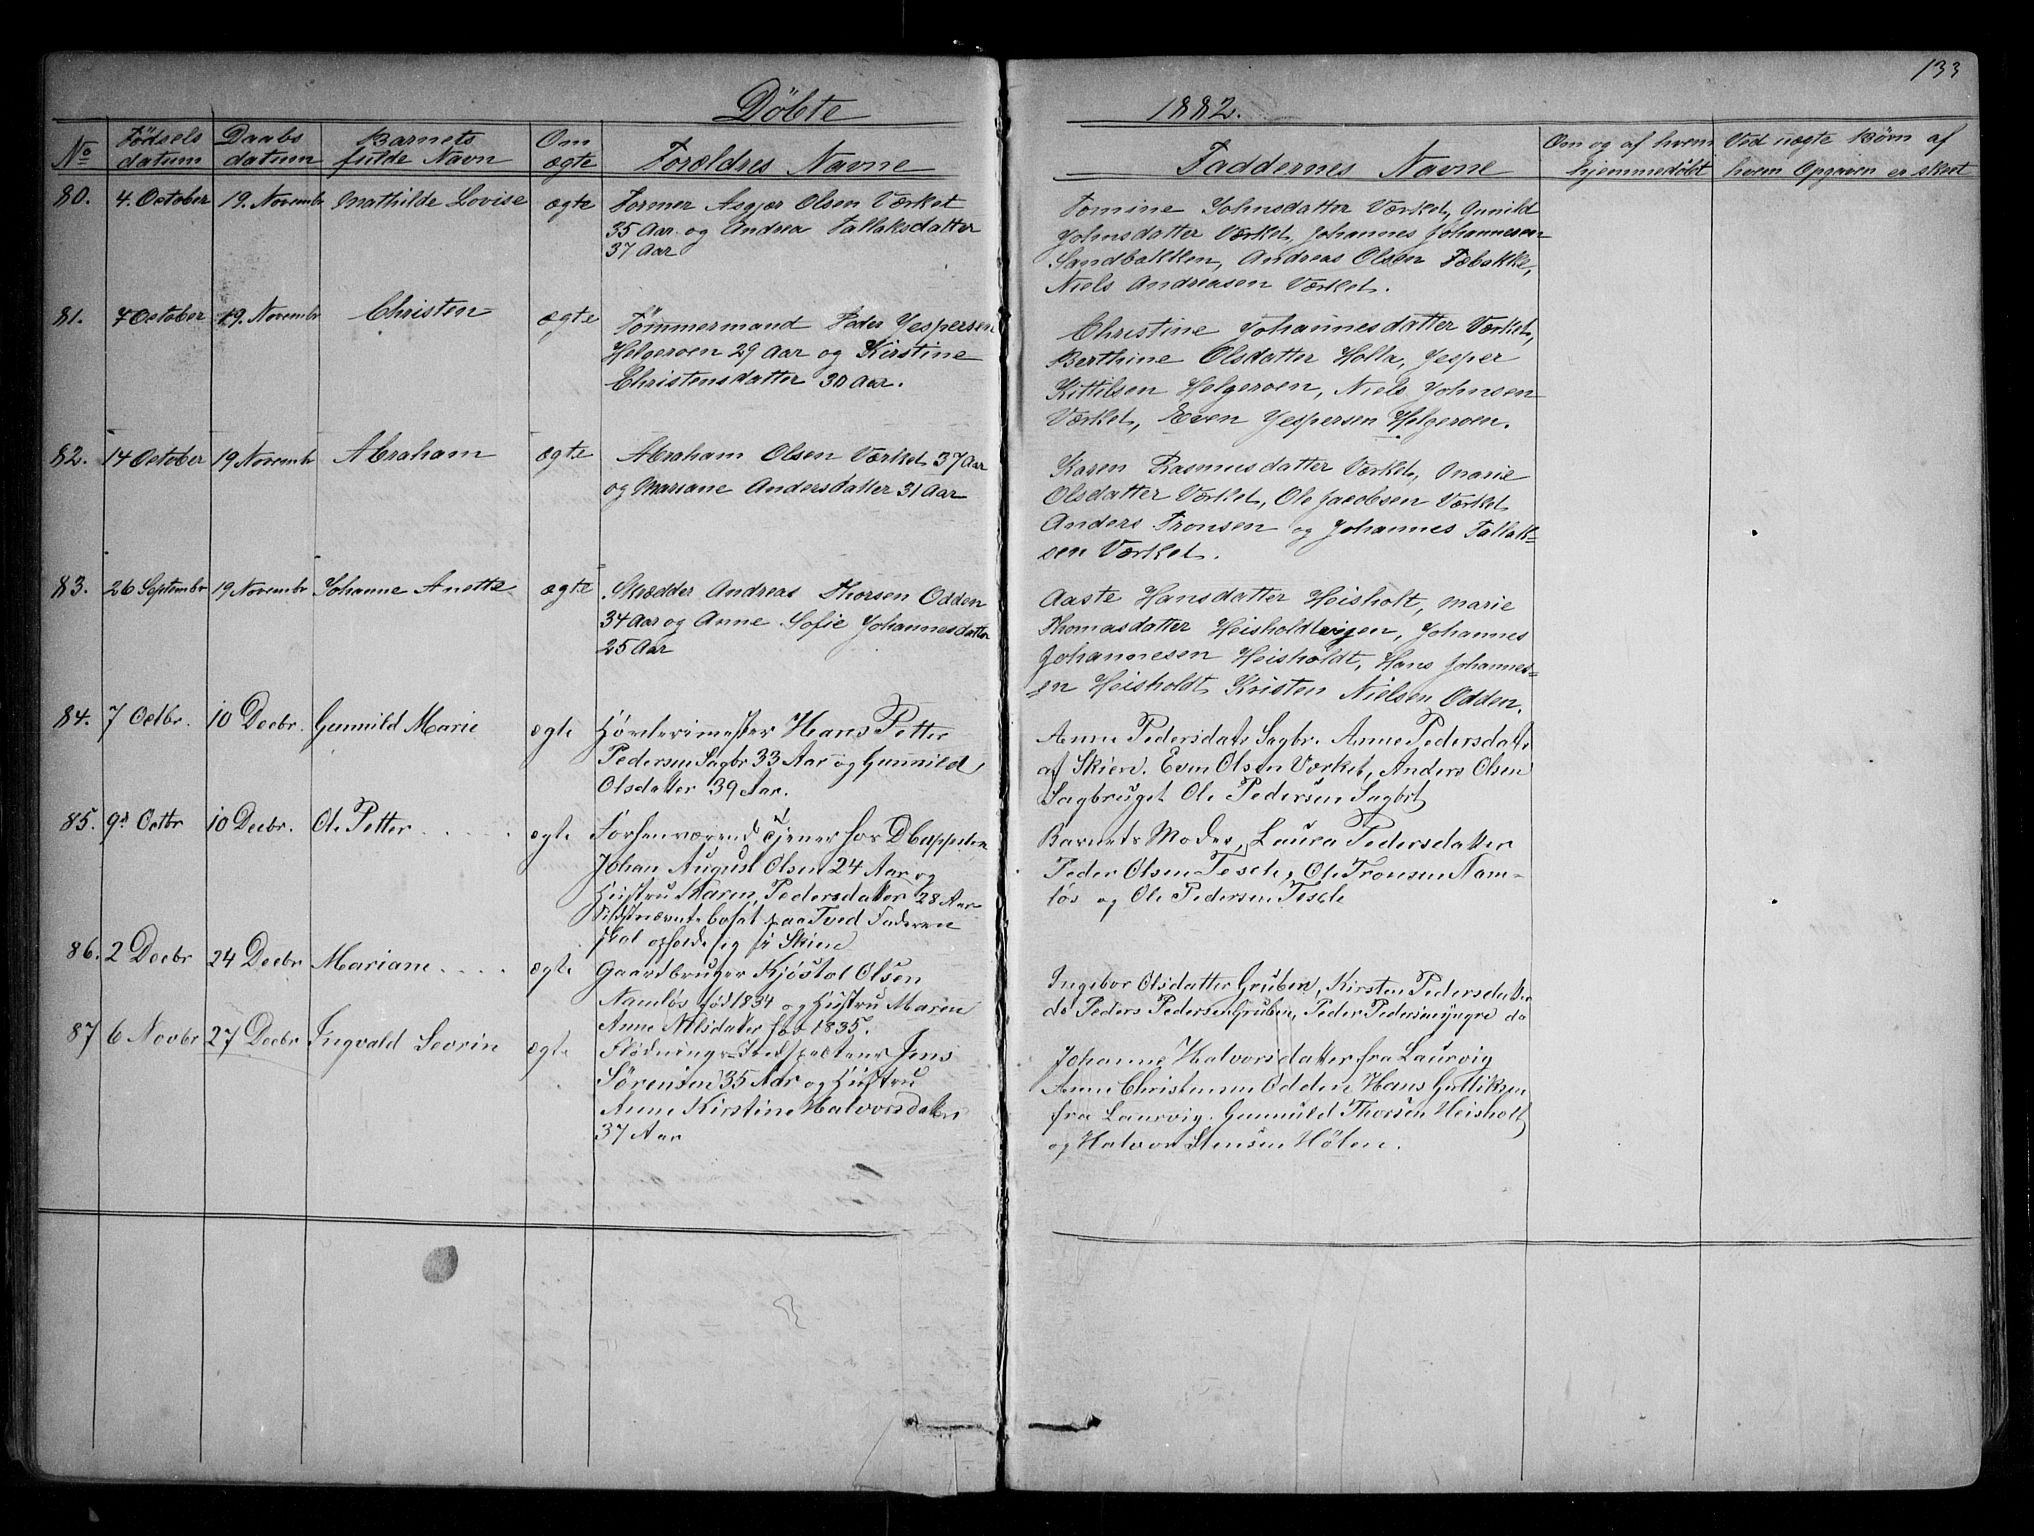 133
Döbte 1882.
No Födsels datum Daabs datum Barnets fulde Navn Om ægte Forældres Navne
Faddernes Navne Om og af hvem hjemmedöbt Ved uægte Börn af hvem Opgaven er skeet
80. 4. October 19. Novembr Mathilde Lovise ægte Former Asgjer Olsen Værket
35 Aar og Andrea Tallaksdatter
37 Aar
Tomine Johnsdatter Værket, Gunild
Johnsdatter Værket, Johannes Johannesen
Sandbakken, Andreas Olsen Fæbakke,
Niels Andreasen Værket.
81. 7 October 19. Novembr Christen ægte Tömmermand Peder Jespersen
Helgeroen 29 Aar og Kirstine
Christensdatter 30 Aar.
Christine Johannesdatter Værket,
Berthine Olsdatter Holla, Jesper
Kittilsen Helgeroen, Niels Johnsen
Værket, Even Jespersen Helgeroen.
82. 14 October 19 Novembr Abraham ægte Abraham Olsen Værket 37 Aar
og Mariane Andersdatter 31 Aar
Karen Rasmusdatter Værket, Marie
Olsdatter Værket, Ole Jacobsen Værket
Anders Tronsen og Johannes Tallak=
sen Værket.
83. 26 Septembr 19 Novembr Johanne Anette ægte Skrædder Andreas Thorsen Odden
34 Aar og Anne Sofie Johannesdatter
25 Aar
Aaste Hansdatter Heisholt, Marie
Thomasdatter Heisholdtvigen, Johannes
Johannesen Heisholdt, Hans Johannes=
en Heisholdt Kristen Nielsen Odden.
84. 7 Octbr. 10 Decbr. Gunnild Marie ægte Høvlerimester Hans Petter
Pedersen Sagbr 33 Aar og Gunnild
Olsdatter 39 Aar.
Anne Pedersdatr Sagbr. Anne Pedersdatr
af Skien. Even Olsen Værket, Anders Olsen
Sagbruget Ole Pedersen Sagbrt
85. 9d Octbr 10 Decbr. Ole Petter ægte Forhenværende Tjener hos D Cappelen
Johan August Olsen 24 Aar og
Hustru Maren Pedersdatter 28 Aar
Sidstnævnte bosat paa Tved Faderen
skal opholde sig i Skien
Barnets Moder, Laura Pedersdatter
Peder Olsen Tesch, Ole Tronsen Nam-
løs og Ole Pedersen Tesch
86. 2 Decbr 24 Decbr Mariane ægte Gaardbruger Kjøstol Olsen
Namløs fød 1834 og Hustru Maren
Anne Nilsdatter fød 1835.
Ingebor Olsdatter Gruben, Kirsten Pedersdatter
do Peders Pedersen Gruben, Peder Pedersen yngre do
87 6 Novbr 27 Decbr Ingvald Sevrin ægte Flødnings-Inspecteur Jens
Sørensen 35 Aar og Hustru
Anne Kirstine Halvorsdatter
37 Aar
Johanne Halvorsdatter fra Laurvig
Anne Christensen Odden Hans Gulliksen
fra Laurvig. Gunnuld Thorsen Heisholt
og Halvor Stensen Hölen.